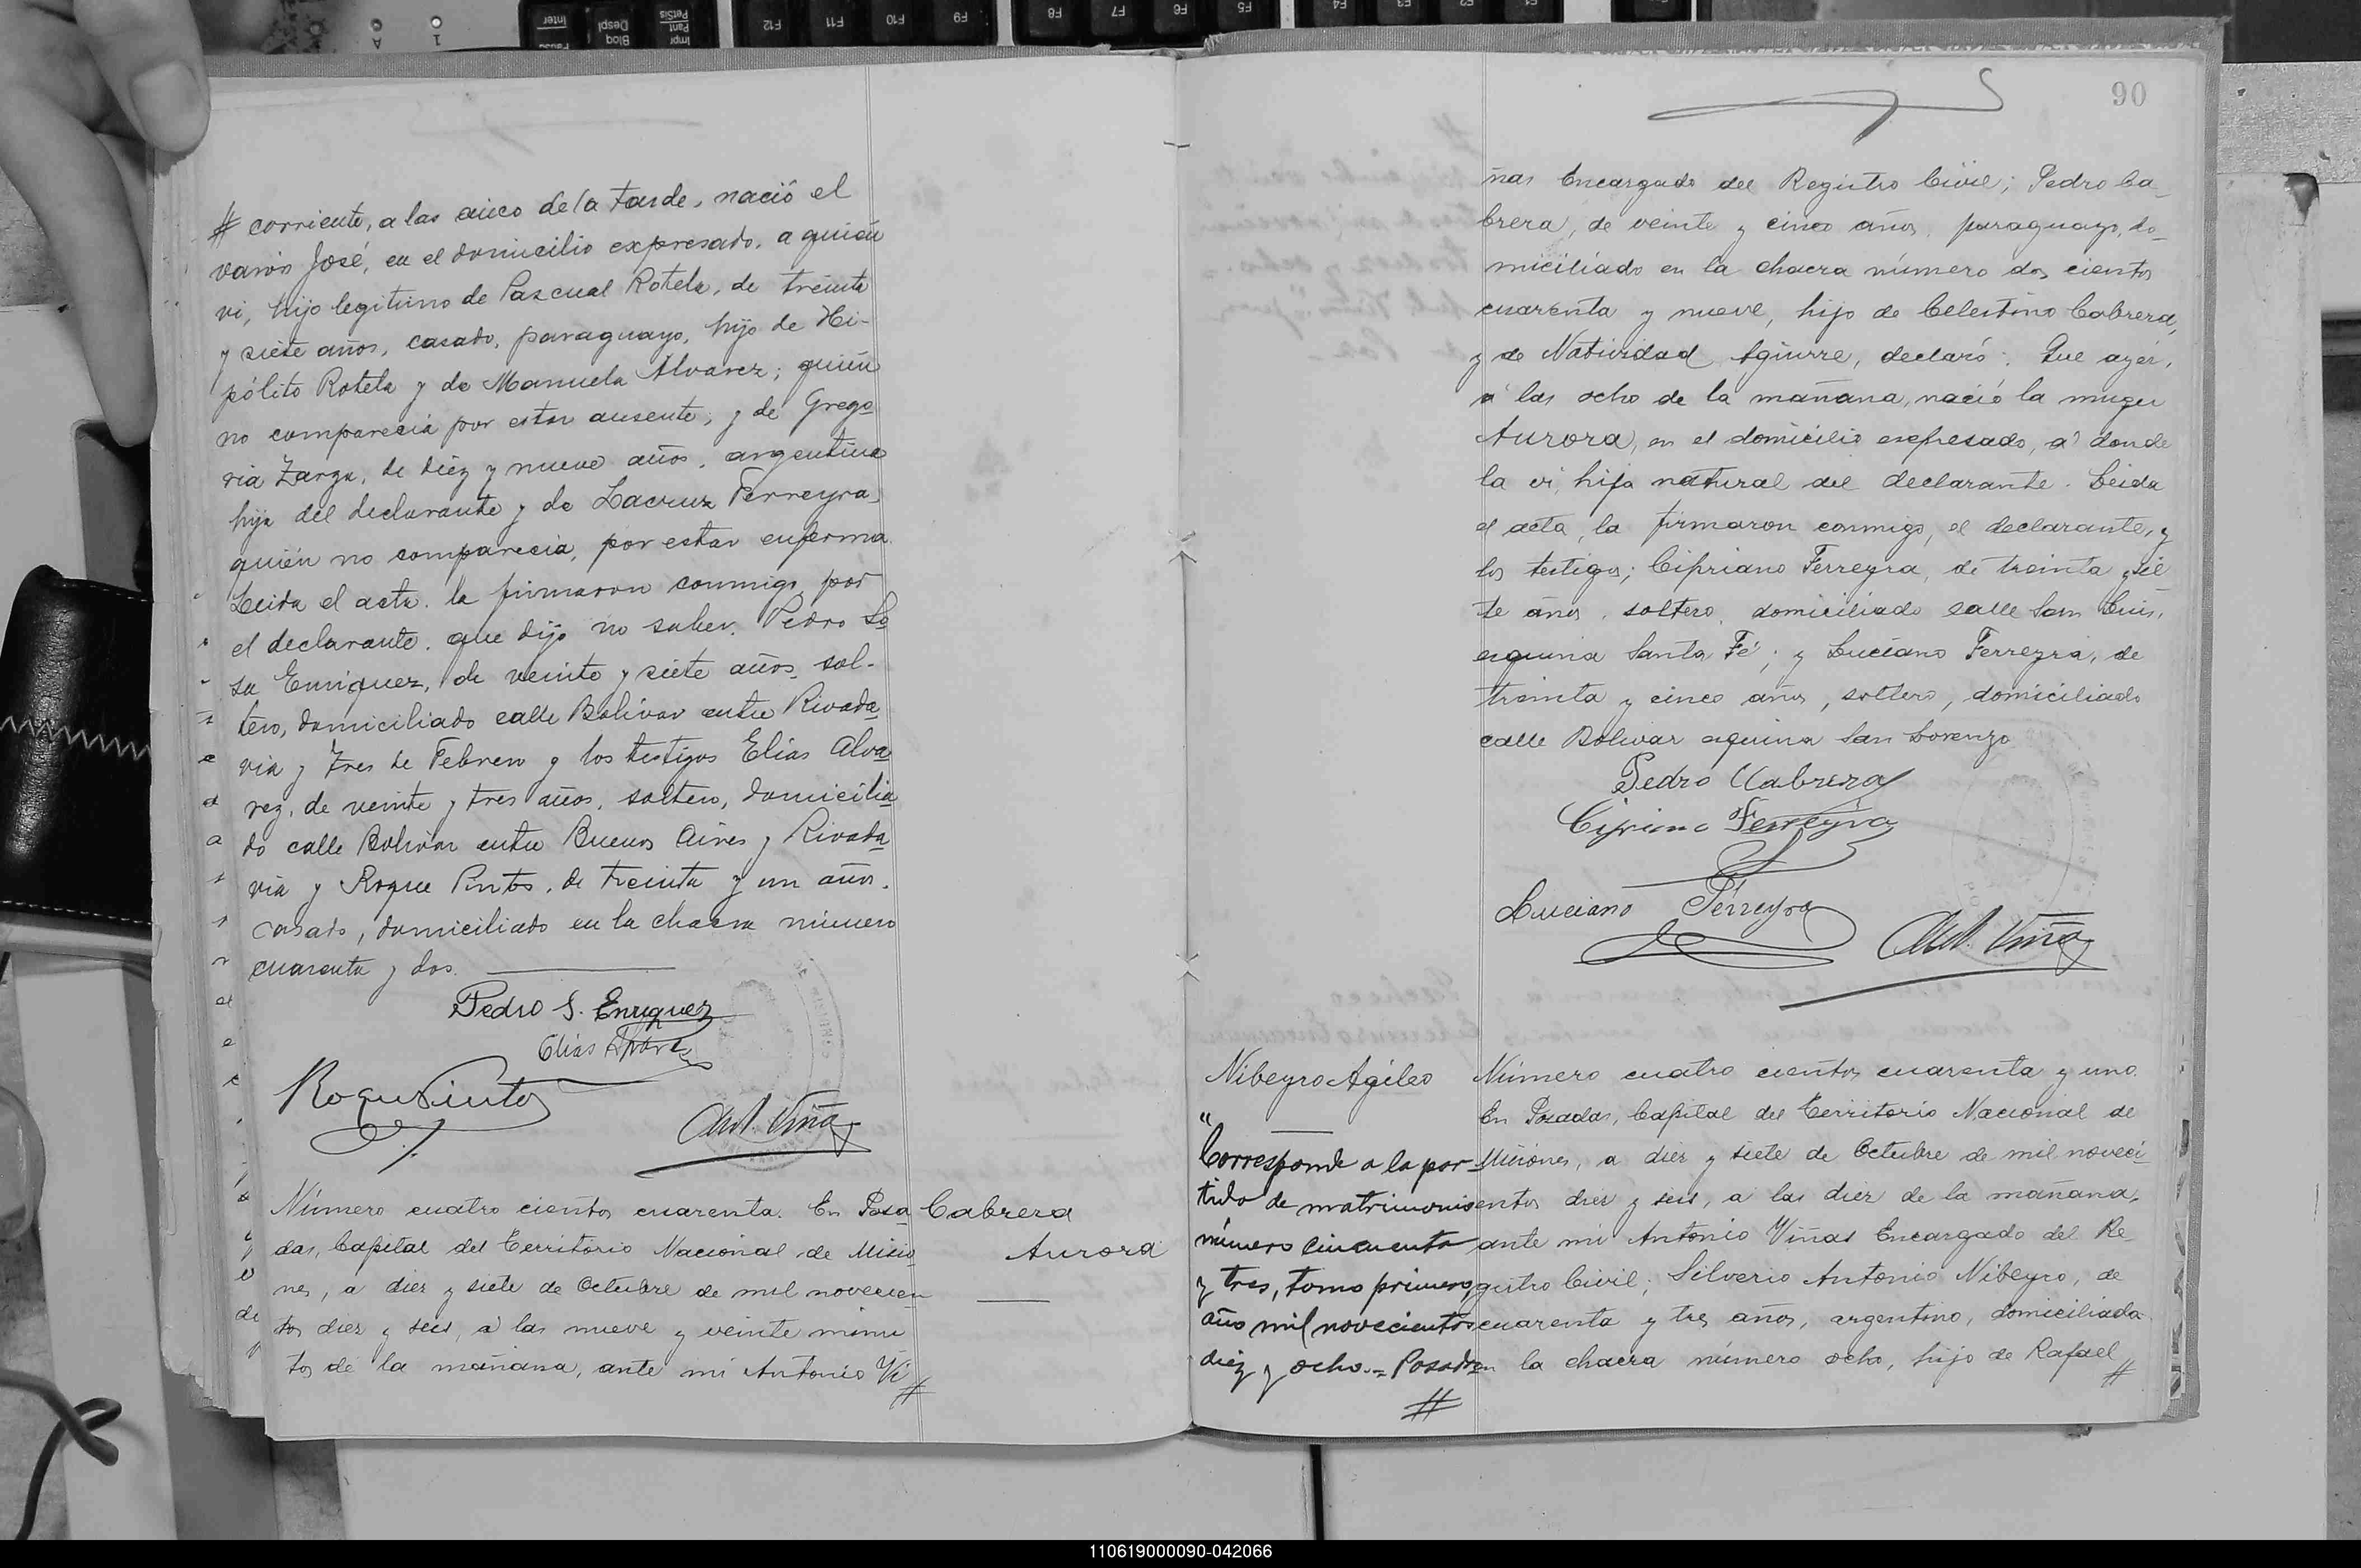 # corriente, a las cinco de la tarde, nació el
varón José, en el domicilio expresado, a quién
vi, hijo legitimo de Pascual Rotela, de treinta
y siete años, casado, paraguayo, hijo de Hi-
pólito Rotela y de Manuela Alvarez; quién
no comparecia por estar ausente; y de Grego
ria Zarza, de diez y nueve años, argentina
hija del declarante y de Lacruz Ferreyra
quién no comparecia, por estar enferma.
Leida el acta, la firmaron conmigo, por
el declarante, que dijo no saber, Pedro So
sa Enriquez, de veinte y siete años, sol-
tero, domiciliado calle Bolívar entre Rivada
via y Tres de Febrero y los testigos Elías Alva
rez, de veinte y tres años, soltero, domicilia
do calle Bolívar entre Buenos Aires y Rivada
via y Roque Pintos, de treinta y un años,
casado, domiciliado en la chacra número
cuarenta y dos.
Pedro S. Enriquez
Elías Alvarez
Roque Pintos
Ant. Viñas
Número cuatro cientos cuarenta. En Posa
das, Capital del Territorio Nacional de Misio
nes, a diez y siete de Octubre de mil novecien
tos diez y seis, a las nueve y veinte minu
tos de la mañana, ante mi Antonio Vi
#
Cabrera
Aurora
90
ñas Encargado del Registro Civil; Pedro Ca-
brera, de veinte y cinco años, paraguayo, do-
miciliado en la chacra número dos cientos
cuarenta y nueve, hijo de Celestino Cabrera,
y de Natividad Aguirre, declaró: Que ayer,
a las ocho de la mañana, nació la muger
Aurora, en el domicilio expresado, a donde
la vi, hija natural del declarante. Leida
el acta, la firmaron conmigo, el declarante, y
los testigos; Cipriano Ferreyra, de treinta y sie
te años, soltero, domiciliado calle San Luis,
esquina Santa Fé; y Luciano Ferreyra, de
treinta y cinco años, soltero, domiciliado
calle Bolivar esquina San Lorenzo
Pedro Cabrera
Cipriano Ferreyra
Luciano Ferreyra
Ant. Viñas
Nibeyro Agileo
"Corresponde a la par-
tida de matrimonio
número cincuenta
y tres, tomo primero,
año mil novecientos
diez y ocho.= Posadas
#
Número cuatro cientos cuarenta y uno.
En Posadas, Capital del Territorio Nacional de
Misiones, a diez y siete de Octubre de mil noveci-
entos diez y seis, a las diez de la mañana,
ante mi Antonio Viñas Encargado del Re-
gistro Civil; Silverio Antonio Nibeyro, de
cuarenta y tres años, argentino, domiciliado
en la chacra número ocho, hijo de Rafael
#
110619000090-042066